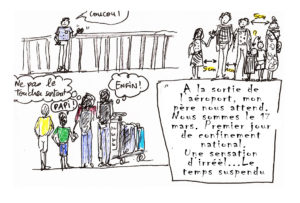 Coucou!
5cm
Ne pas le
toucher surtout
PAPI!
ENFIN!
A la sortie de
l'aéroport, mon
père nous attend.
Nous sommes le 17
mars. Premier jour
de confinement
national.
Une sensation
d'irréél...Le
temps suspendu